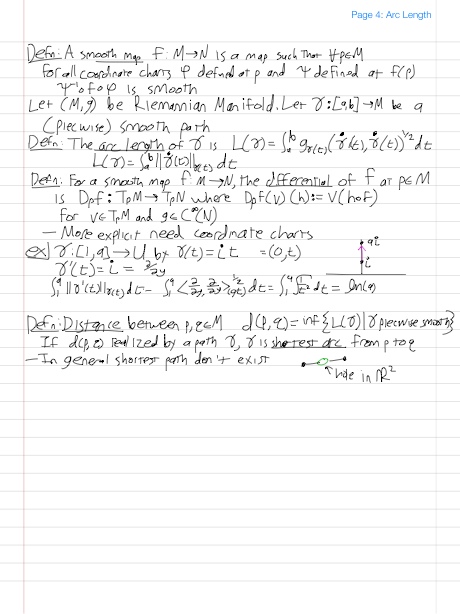 Page 4: Arc Length
Defn: A smooth map f: M→N is a map such that ∀p∈M
For all coordinate charts φ defined at p and ψ defined at f(p)
ψ⁻¹∘f∘φ is smooth
Let (M,g) be Riemannian Manifold. Let γ:[a,b]→M be a
(piecwise) smooth path
Defn: The arc length of γ is L(γ) = ∫ₐᵇ g_γ(t)(γ̇(t), γ̇(t))^½ dt
L(γ) = ∫ₐᵇ ||γ̇(t)||_γ(t) dt
Defn: For a smooth map f: M→N, the differential of f at p∈M
is Dpf: TpM→TpN where Dpf(v)(h) := v(h∘f)
For v∈TpM and g∈C^∞(N)
— More explicit need coordinate charts
ex) γ:[1,a]→U by γ(t) = it = (0,t)
γ'(t) = i = ∂/∂y
∫₁ᵃ ||γ'(t)||_γ(t) dt = ∫₁ᵃ <∂/∂y, ∂/∂y>^½_(0,t) dt = ∫₁ᵃ √(1/t²) dt = ln(a)
ai
i
Defn: Distance between p,q∈M d(p,q) = inf{L(γ) | γ piecwise smooth}
If d(p,q) realized by a path γ, γ is shortest arc from p to q
— In general shortest path don't exist
hole in ℝ²